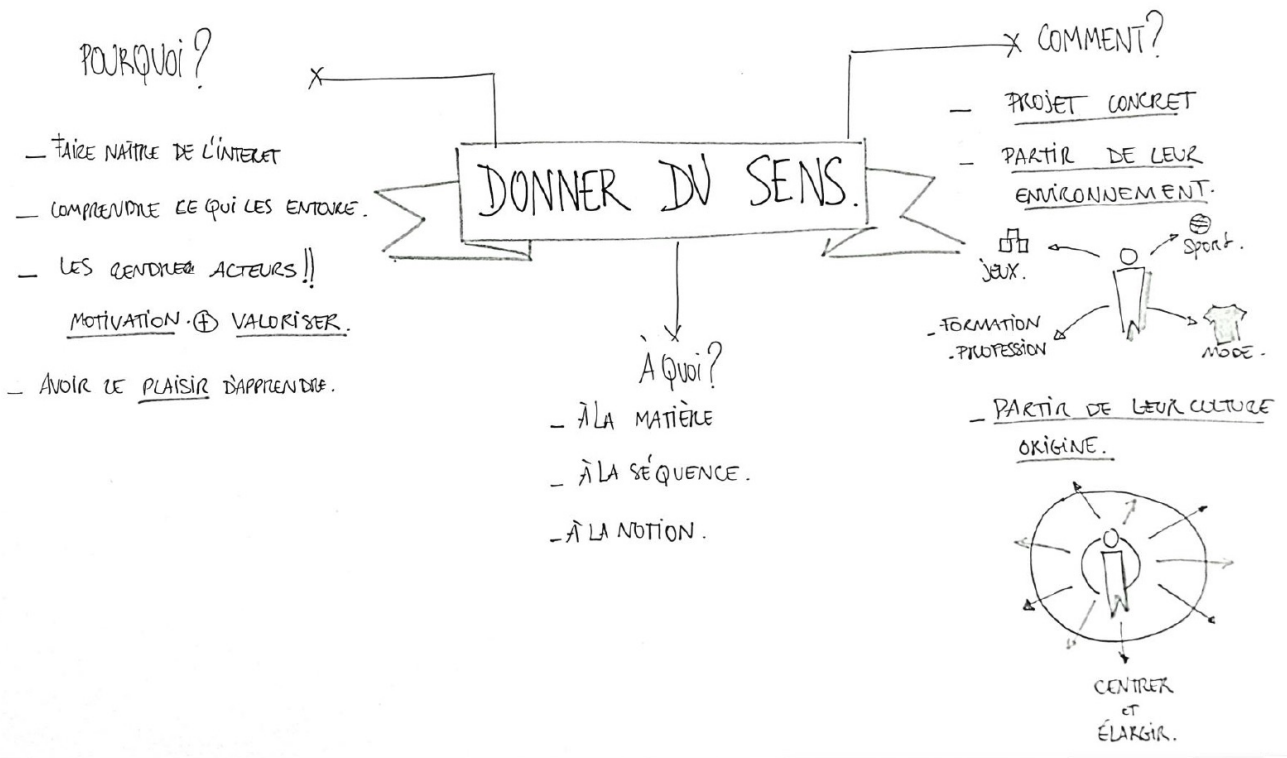 POURQUOI ?
- FAIRE NAÎTRE DE L'INTERET
- COMPRENDRE CE QUI LES ENTOURE.
- LES RENDRE ACTEURS !!
MOTIVATION. + VALORISER.
- AVOIR LE PLAISIR D'APPRENDRE.
DONNER DU SENS.
À QUOI ?
- À LA MATIÈRE
- À LA SÉQUENCE.
- À LA NOTION.
COMMENT ?
- PROJET CONCRET
- PARTIR DE LEUR
ENVIRONNEMENT.
JEUX.
SPORT.
- FORMATION
- PROFESSION
MODE.
- PARTIR DE LEUR CULTURE
ORIGINE.
CENTRER
ET
ÉLARGIR.